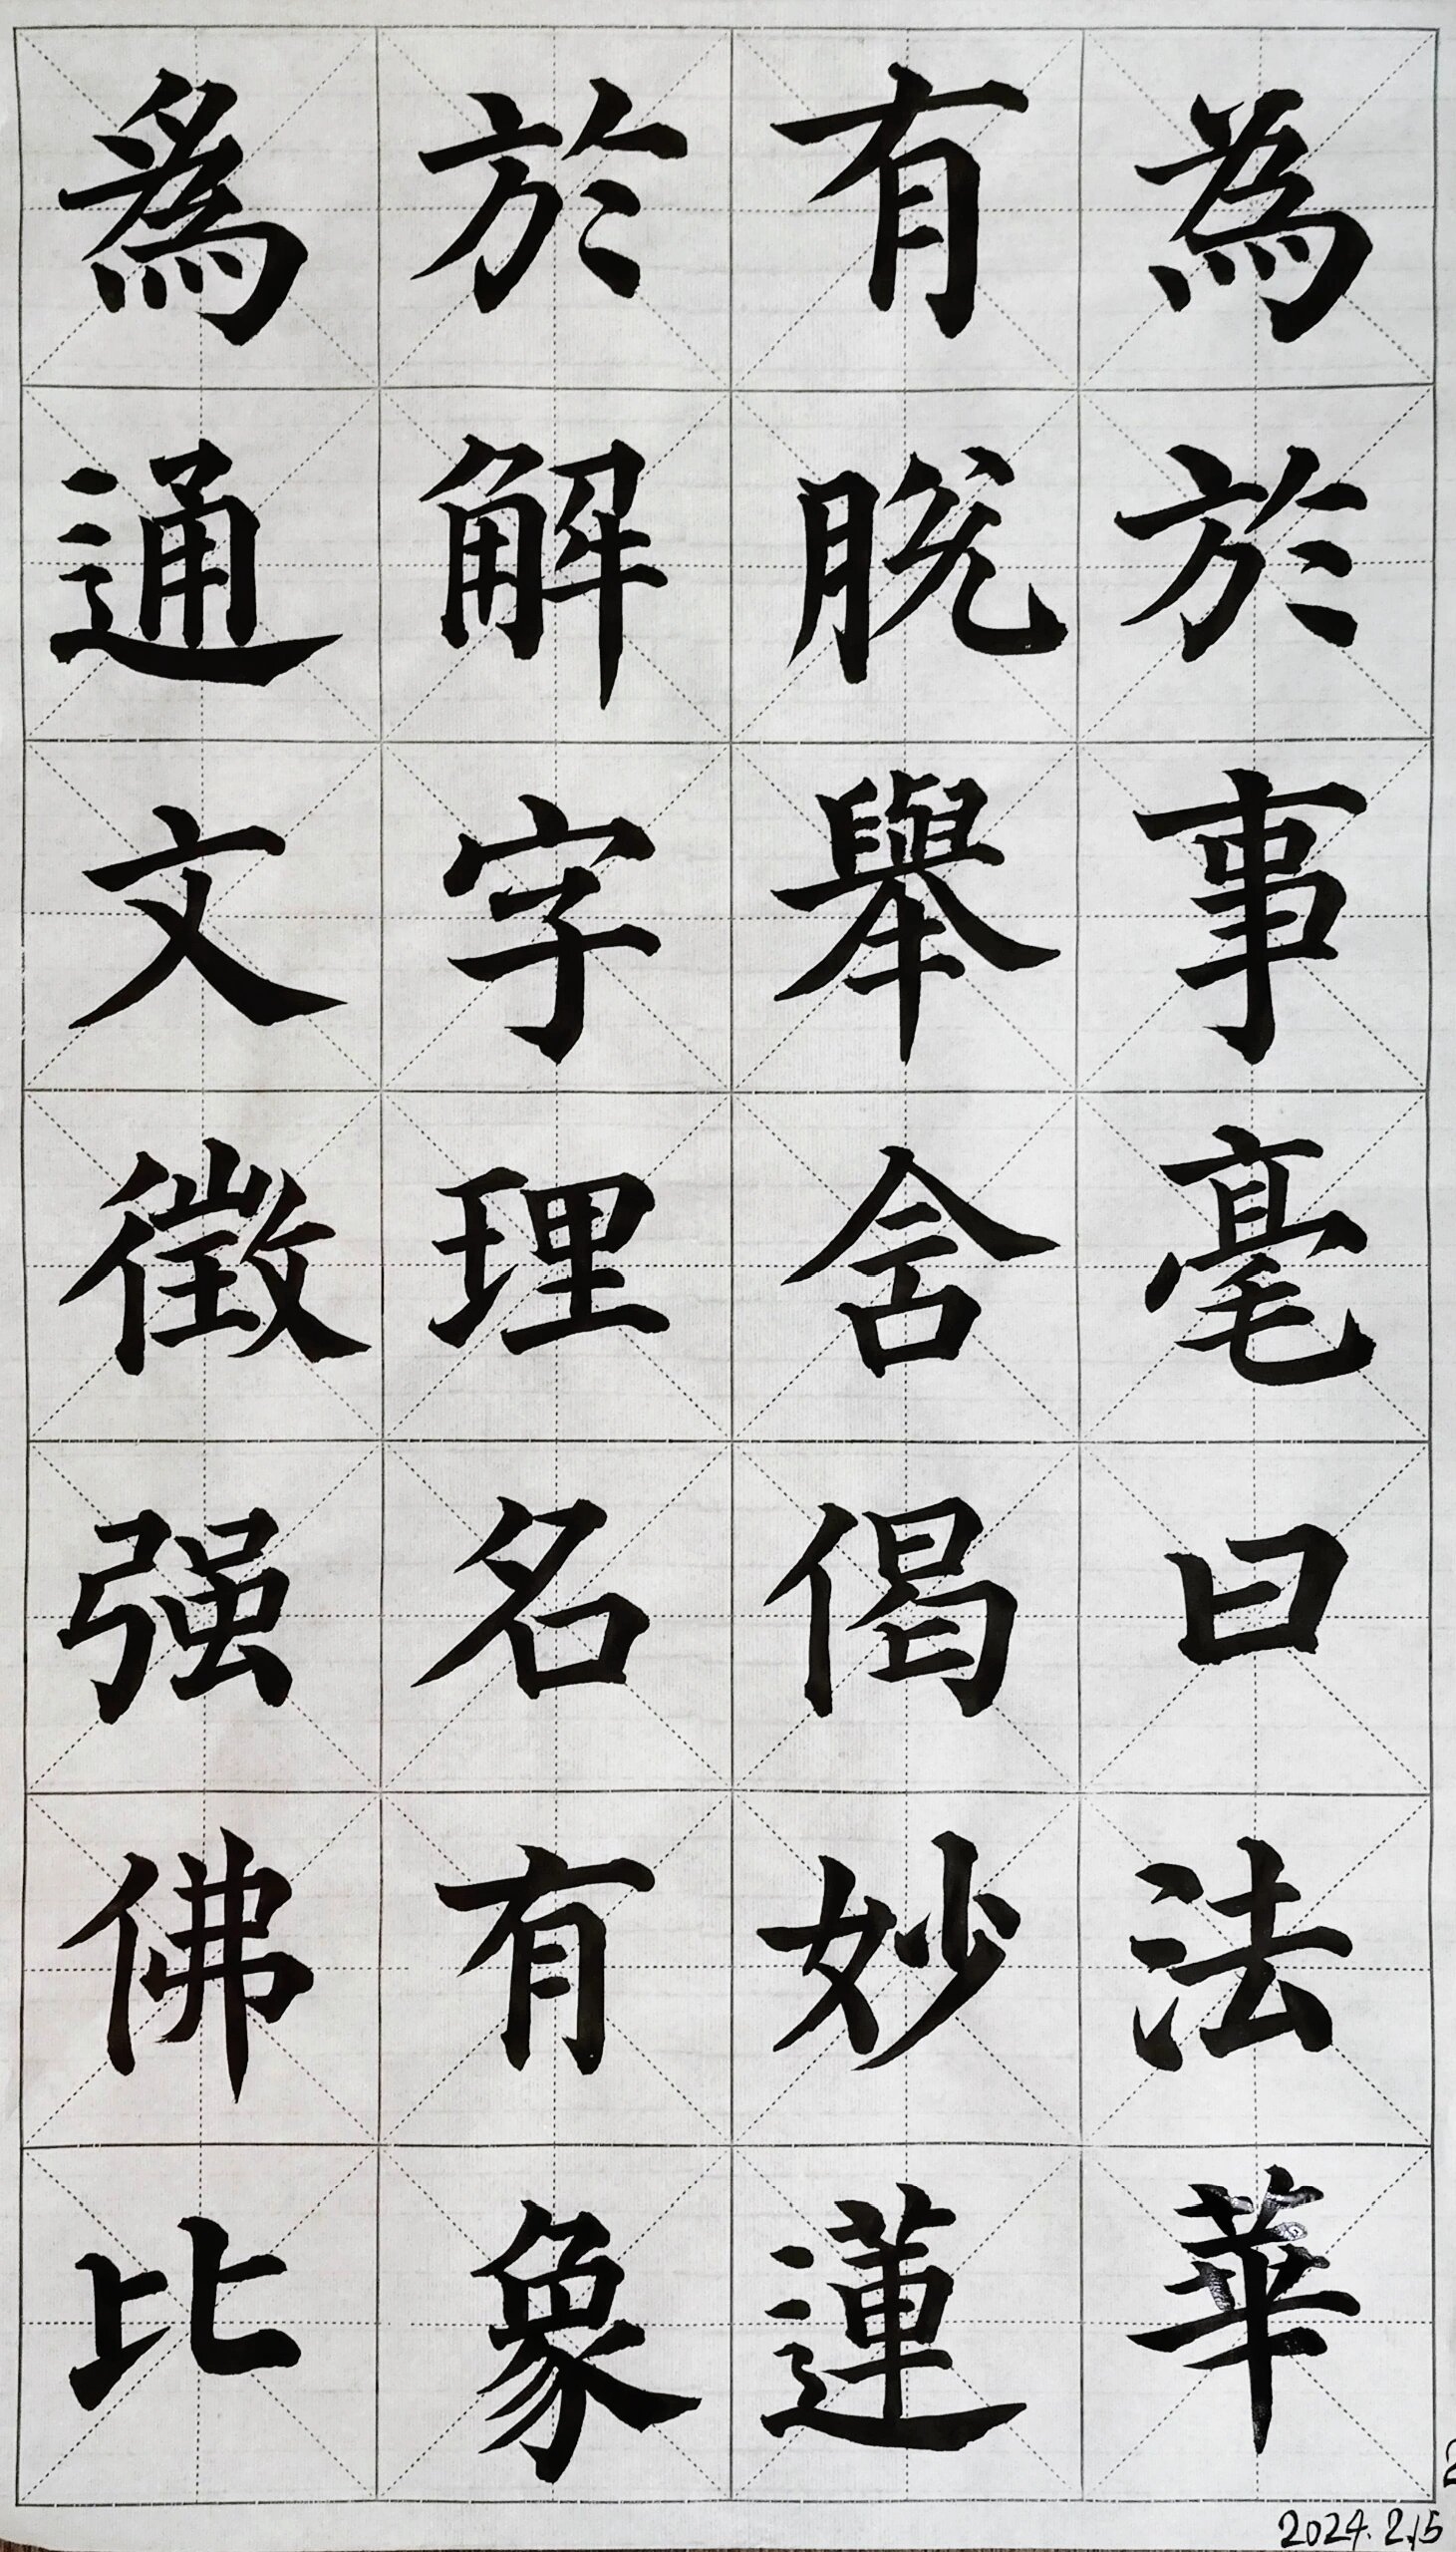 為於事毫曰法華
有脱舉舍偈妙蓮
於解字理名有象
爲通文徵强佛比
2024.2.15